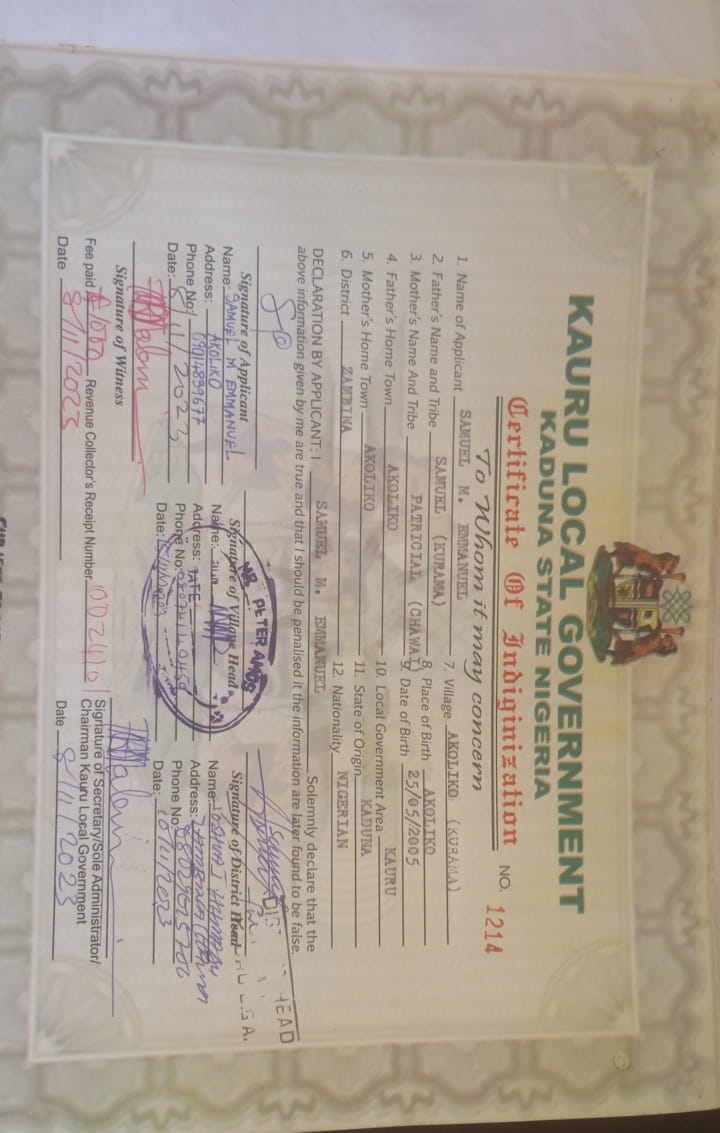 KAURU LOCAL GOVERNMENT
KADUNA STATE NIGERIA
Certificate Of Indiginization NO. 1214
To Whom it may concern
1. Name of Applicant SAMUEL M. EMMANUEL
2. Father's Name and Tribe SAMUEL (KURAMA)
3. Mother's Name And Tribe PATRICIAL (CHAWAI)
4. Father's Home Town AKOLIKO
5. Mother's Home Town AKOLIKO
6. District ZAMBINA
7. Village AKOLIKO (KURAMA)
8. Place of Birth AKOLIKO
9. Date of Birth 25/05/2005
10. Local Government Area KAURU
11. State of Origin KADUNA
12. Nationality NIGERIAN
DECLARATION BY APPLICANT: I SAMUEL M. EMMANUEL Solemnly declare that the
above information given by me are true and that I should be penalised it the information are later found to be false
Signature of Applicant
Name: SAMUEL M EMMANUEL
Address: AKOLIKO
Phone No: 09014839677
Date: 8/11/2023
Signature of Village Head
MR. PETER AMOS
Name:
Address: TATE
Phone No:
Date:
HEAD
L.G.A.
Signature of District Head
Name:
Address:
Phone No:
Date: 10/11/2023
Signature of Witness
Signature of Secretary/Sole Administrator/
Chairman Kauru Local Government
Fee paid ₦1000 Revenue Collector's Receipt Number 0024101
Date 8/11/2023
Date 8/11/2023